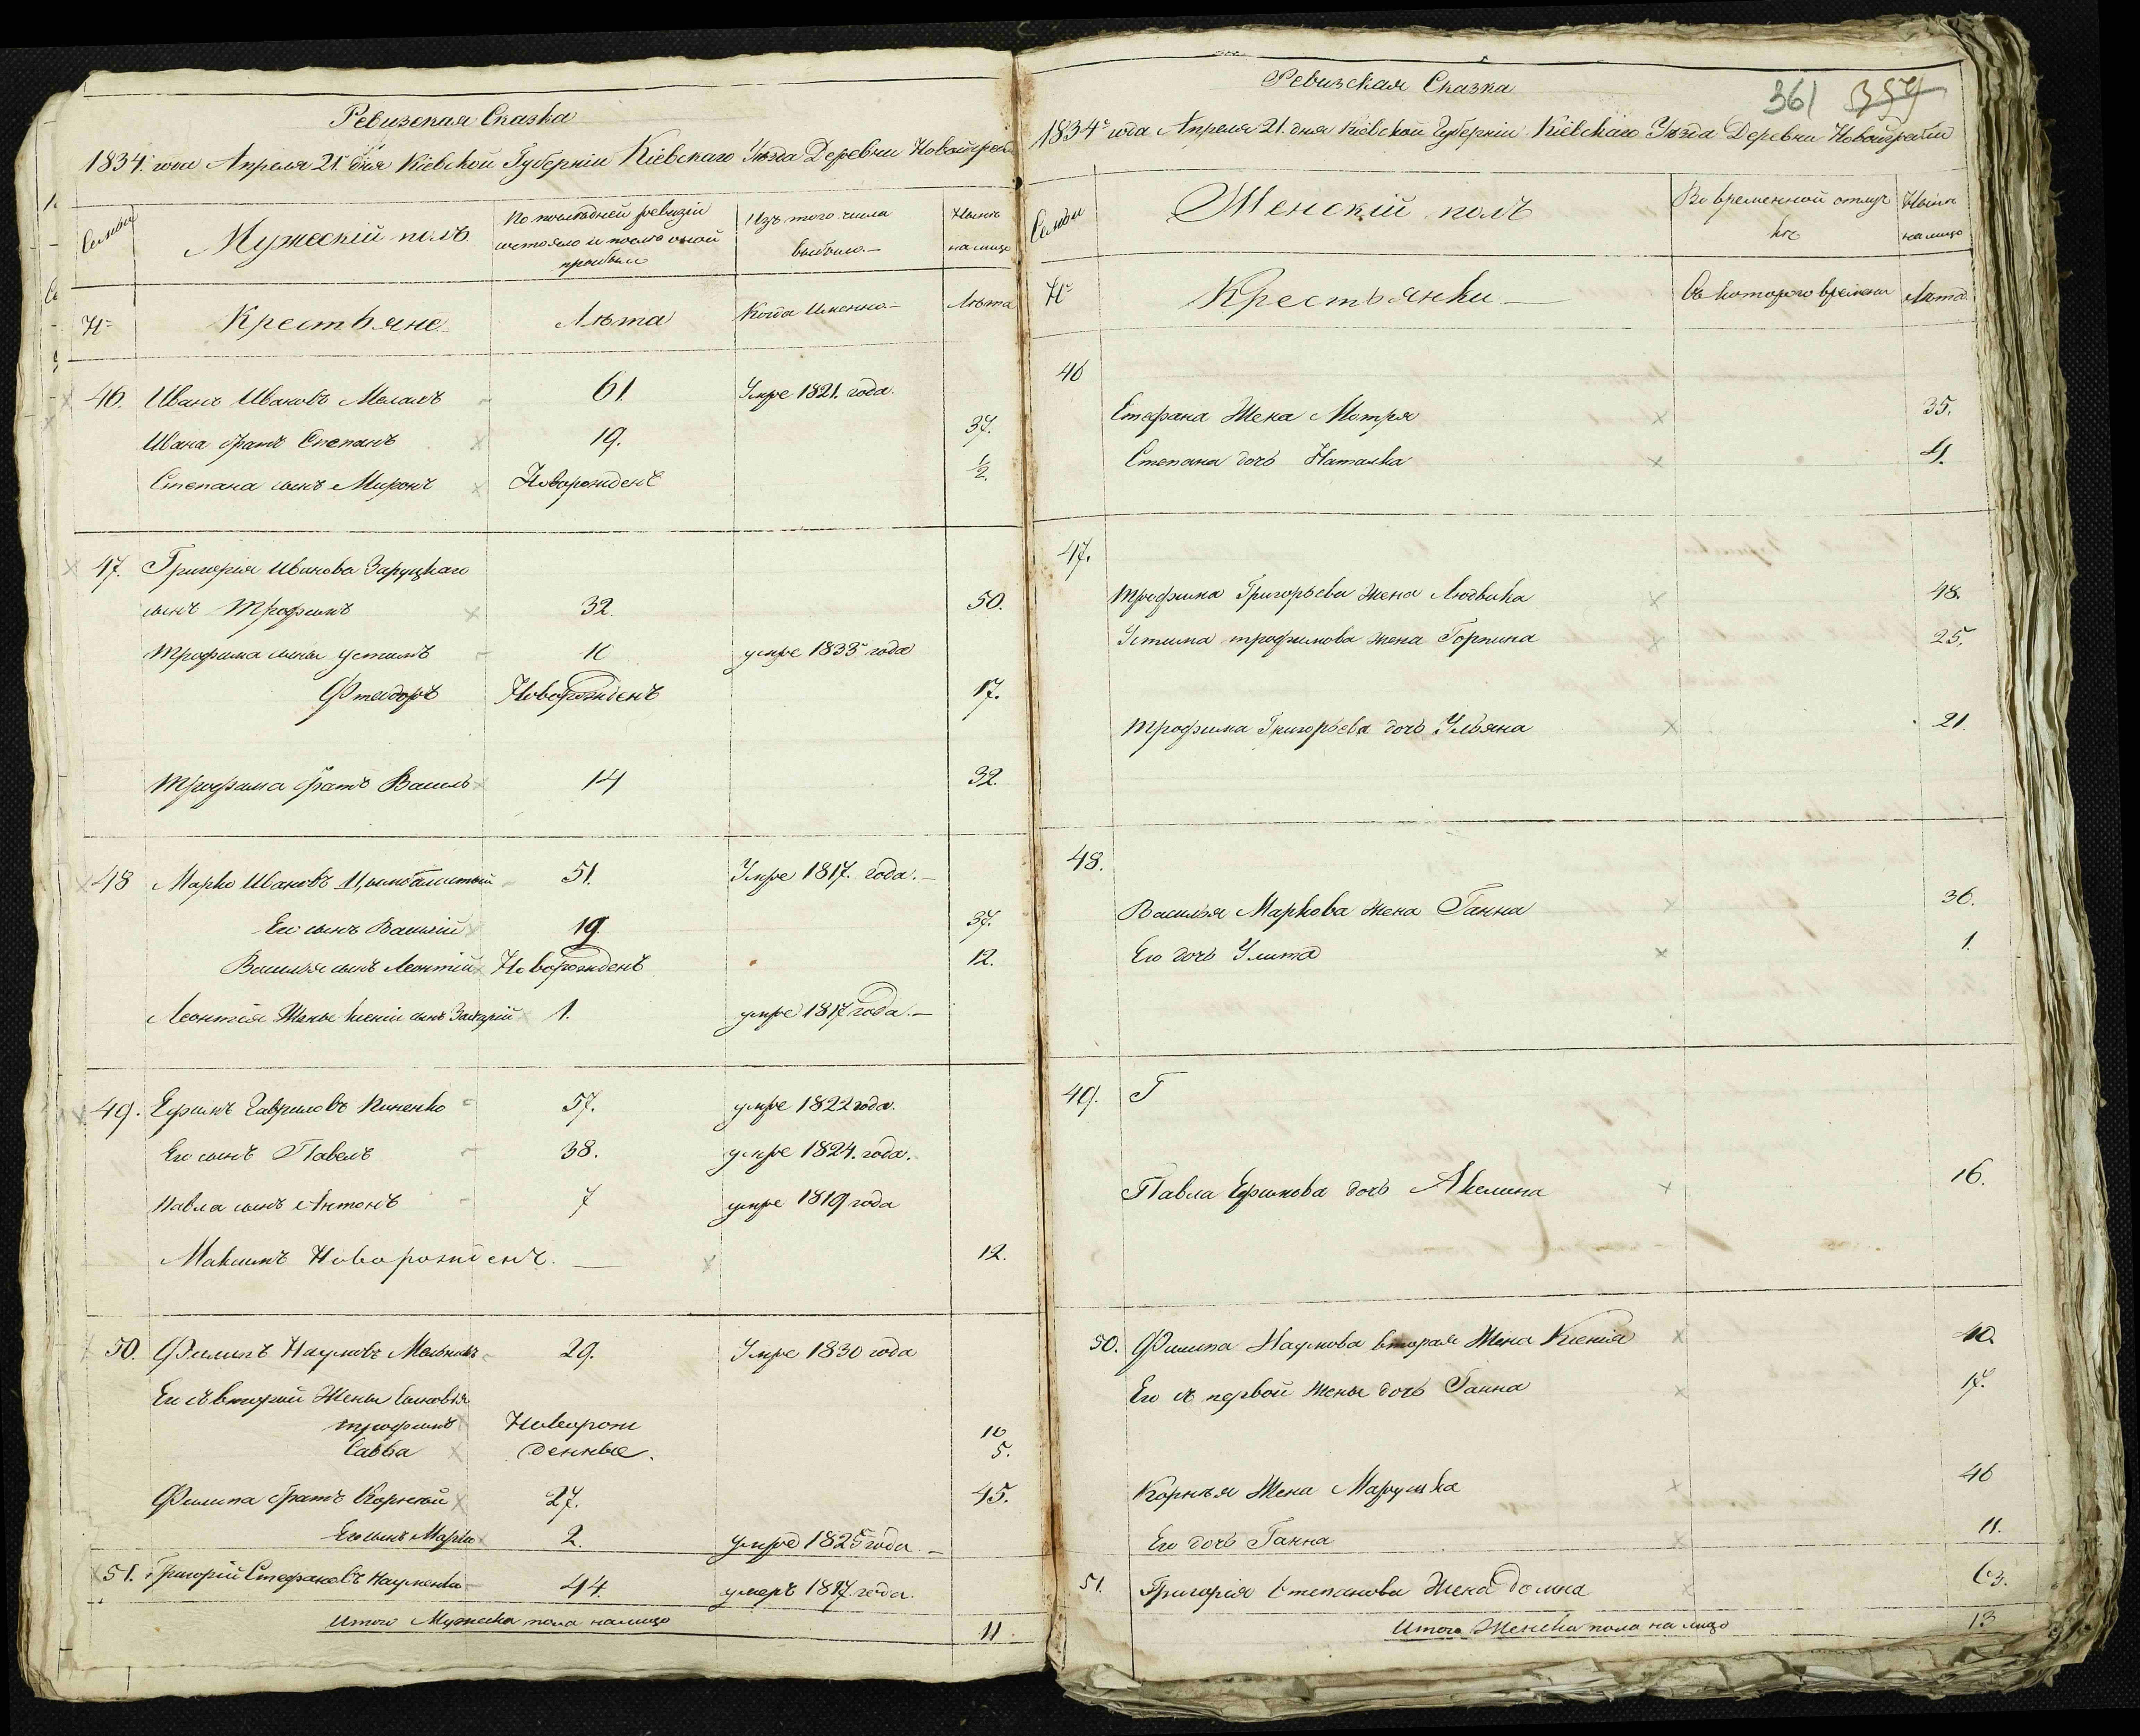 Ревизская Сказка
1834. года Апреля 21. дня Кіевской Губерніи Кіевскаго Уезда Деревни Новой
Семьи
Мужескій полъ
По последней ревизіи состояло и после оной прибыло
Изъ того числа выбыло.—
Ныне на лицо
№
Крестьяне
Лета
Когда Именно—
Лета
46. Иванъ Ивановъ 61 Умре 1821. года.
Ивана братъ Степанъ 19. 37.
Степана сынъ Миронъ Новорожденъ ½.
47. Григорія Иванова Заруцкаго
сынъ Трофимъ 32 50.
Трофима сыны Устимъ умре 1833 года
Фтеодоръ Новорожденъ 17.
Трофима братъ Василь 14 32.
48 Марко Ивановъ 51. Умре 1817. года.—
Его сынъ Василій 19. 37.
Василья сынъ Леонтій Новорожденъ 12.
Леонтія Жены сынъ 1. умре 1817 года.—
49. Ефимъ Гавриловъ 57. умре 1822 года.
Его сынъ Павелъ 38. умре 1824. года.
Павла сынъ Антонъ 7 умре 1819 года
Максимъ Новорожденъ.— 12.
50. Филипъ Наумовъ Мельникъ 29. Умре 1830 года
Его съ второй Жены сыновья
Трофимъ Новорож 10
Савва денные. 5.
Филипа братъ Корней 27. 45.
Его сынъ Марко 2. умре 1825 года.—
51. Григорій Стефановъ Науменко 44. умеръ 1817. года.
Итого Мужеска пола налицо 11.
Ревизская Сказка
361 357
1834 года Апреля 21. дня Кіевской Губерніи Кіевскаго Уезда Деревни Новой
Семьи
Женскій полъ
Во временной отлучке
Ныне на лицо
№
Крестьянки—
Съ котораго времени
Лета
46
Стефана Жена Мотря 35.
Степана дочь Наталка 4.
47.
Трофима Григорьева жена Людвика 48.
Устима трофимова жена Горпина 25.
Трофима Григорьева дочь Ульяна 21.
48.
Василья Маркова жена Ганна 36.
Его дочь Улита 1.
49. Г
Павла Ефимова дочь Акелина 16.
50. Филипа Наумова вторая Жена Ксенія 40.
Его съ первой жены дочь Ганна 17.
Корнея Жена Марушка 46
Его дочь Ганна 11.
51. Григорія Степанова Жена Домна 63.
Итого Женска пола на лицо 13